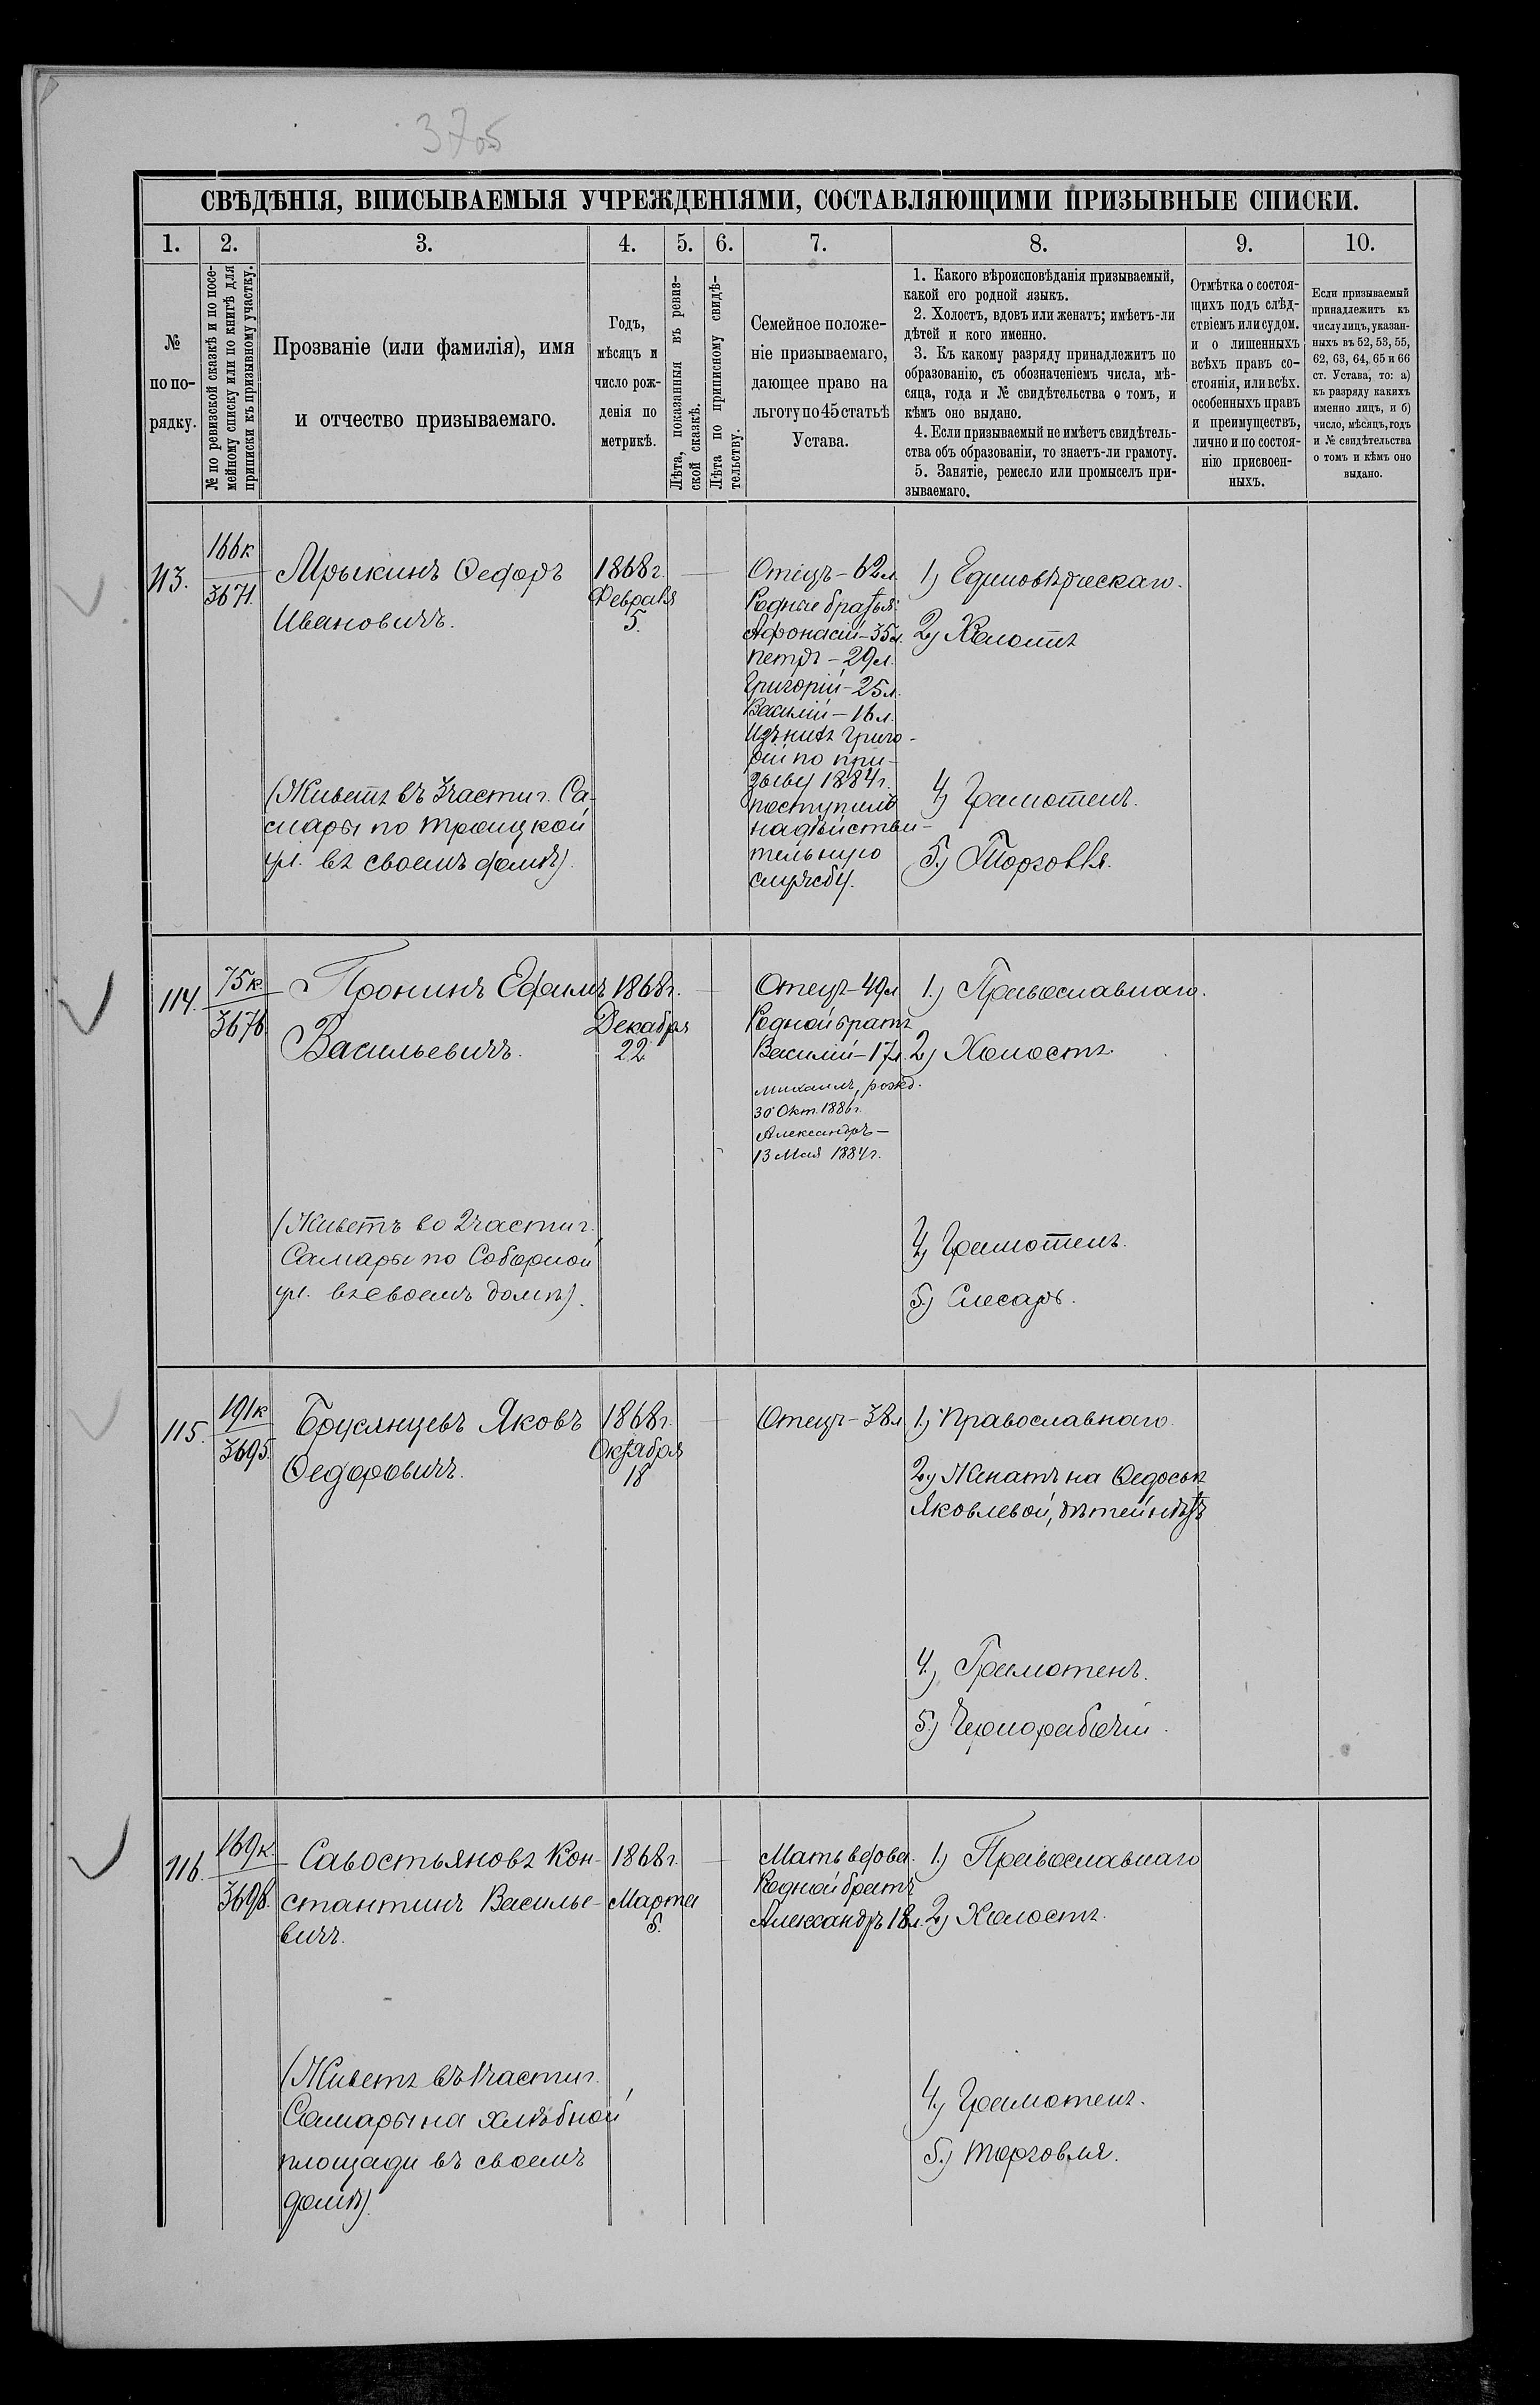 3705
СВѢДѢНІЯ, ВПИСЫВАЕМЫЯ УЧРЕЖДЕНІЯМИ, СОСТАВЛЯЮЩИМИ ПРИЗЫВНЫЕ СПИСКИ.
1. 2. 3. 4. 5. 6. 7. 8. 9. 10.
№
по по-
рядку.
№ по ревизской сказкѣ и по посе-
мейному списку или по книгѣ для
приписки къ призывному участку.
Прозваніе (или фамилія), имя
и отчество призываемаго.
Годъ,
мѣсяцъ и
число рож-
денія по
метрикѣ.
Лѣта, показанныя въ ревиз-
ской сказкѣ.
Лѣта по приписному свидѣ-
тельству.
Семейное положе-
ніе призываемаго,
дающее право на
льготу по 45 статьѣ
Устава.
1. Какого вѣроисповѣданія призываемый,
какой его родной языкъ.
2. Холостъ, вдовъ или женатъ; имѣетъ-ли
дѣтей и кого именно.
3. Къ какому разряду принадлежитъ по
образованію, съ обозначеніемъ числа, мѣ-
сяца, года и № свидѣтельства о томъ, и
кѣмъ оно выдано.
4. Если призываемый не имѣетъ свидѣтель-
ства объ образованіи, то знаетъ-ли грамоту.
5. Занятіе, ремесло или промыселъ при-
зываемаго.
Отмѣтка о состоя-
щихъ подъ слѣд-
ствіемъ или судом.
и о лишенныхъ
всѣхъ правъ со-
стоянія, или всѣх.
особенныхъ правъ
и преимуществъ,
лично и по состоя-
нію присвоен-
ныхъ.
Если призываемый
принадлежитъ къ
числу лицъ, указан-
ныхъ въ 52, 53, 55,
62, 63, 64, 65 и 66
ст. Устава, то: а)
къ разряду какихъ
именно лицъ, и б)
число, мѣсяцъ, годъ
и № свидѣтельства
о томъ и кѣмъ оно
выдано.
113.
166к
3671.
Мрыкинъ Ѳедоръ
Ивановичъ.
(Живетъ въ 3 части г. Са-
мары по Троицкой
ул. въ своемъ домѣ).
1868 г.
Февраля
5.
Отецъ - 62 л.
Родные братья:
Афонасій - 35 л.
Петръ - 29 л.
Григорій - 25 л.
Василій - 16 л.
Изъ нихъ Григо-
рій по при-
зыву 1884 г.
поступилъ
на дѣйстви-
тельную
службу.
1) Единовѣрческаго.
2) Холостъ
4) Грамотенъ.
5.) Торговля.
114.
75к.
3676
Пронинъ Ефимъ
Васильевичъ.
(Живетъ во 2 части г.
Самары по Соборной
ул. въ своемъ домѣ).
1868 г.
Декабря
22
Отецъ - 49 л
Родной братъ
Василій - 17 л.
Михаилъ, рожд.
30 Окт. 1886 г.
Александръ -
13 Мая 1884 г.
1.) Православнаго.
2) Холостъ.
4) Грамотенъ.
5.) Слесарь.
115.
191к
3695.
Бруслнцевъ Яковъ
Ѳедоровичъ.
1868 г.
Октября
18
Отецъ - 38 л
1.) Православнаго.
2.) Женатъ на Ѳедосьѣ
Яковлевой, дѣтей нѣтъ
4.) Грамотенъ.
5.) Чернорабочій.
116.
169к.
3698.
Савостьяновъ Кон-
стантинъ Василье-
вичъ.
(Живетъ въ 1 части г.
Самары на хлѣбной
площади въ своемъ
домѣ).
1868 г.
Марта
5.
Мать вдова.
Родной братъ
Александръ 18 л.
1.) Православнаго
2.) Холостъ.
4.) Грамотенъ.
5.) Торговля.